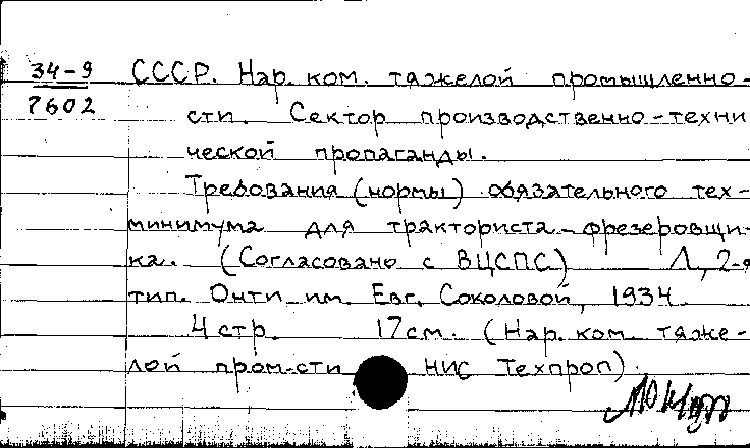 34-9
7602
СССР. Нар. ком. тяжелой промышленно-
сти. Сектор производственно-техни
ческой пропаганды.
Требования (нормы) обязательного тех-
минимума для тракториста-фрезеровщи-
ка. (Согласовано с ВЦСПС) Л, 2-я
тип. Онти им. Евг. Соколовой, 1934.
4 стр. 17 см. (Нар. ком. тяже-
лой пром-сти НИС Техпроп).